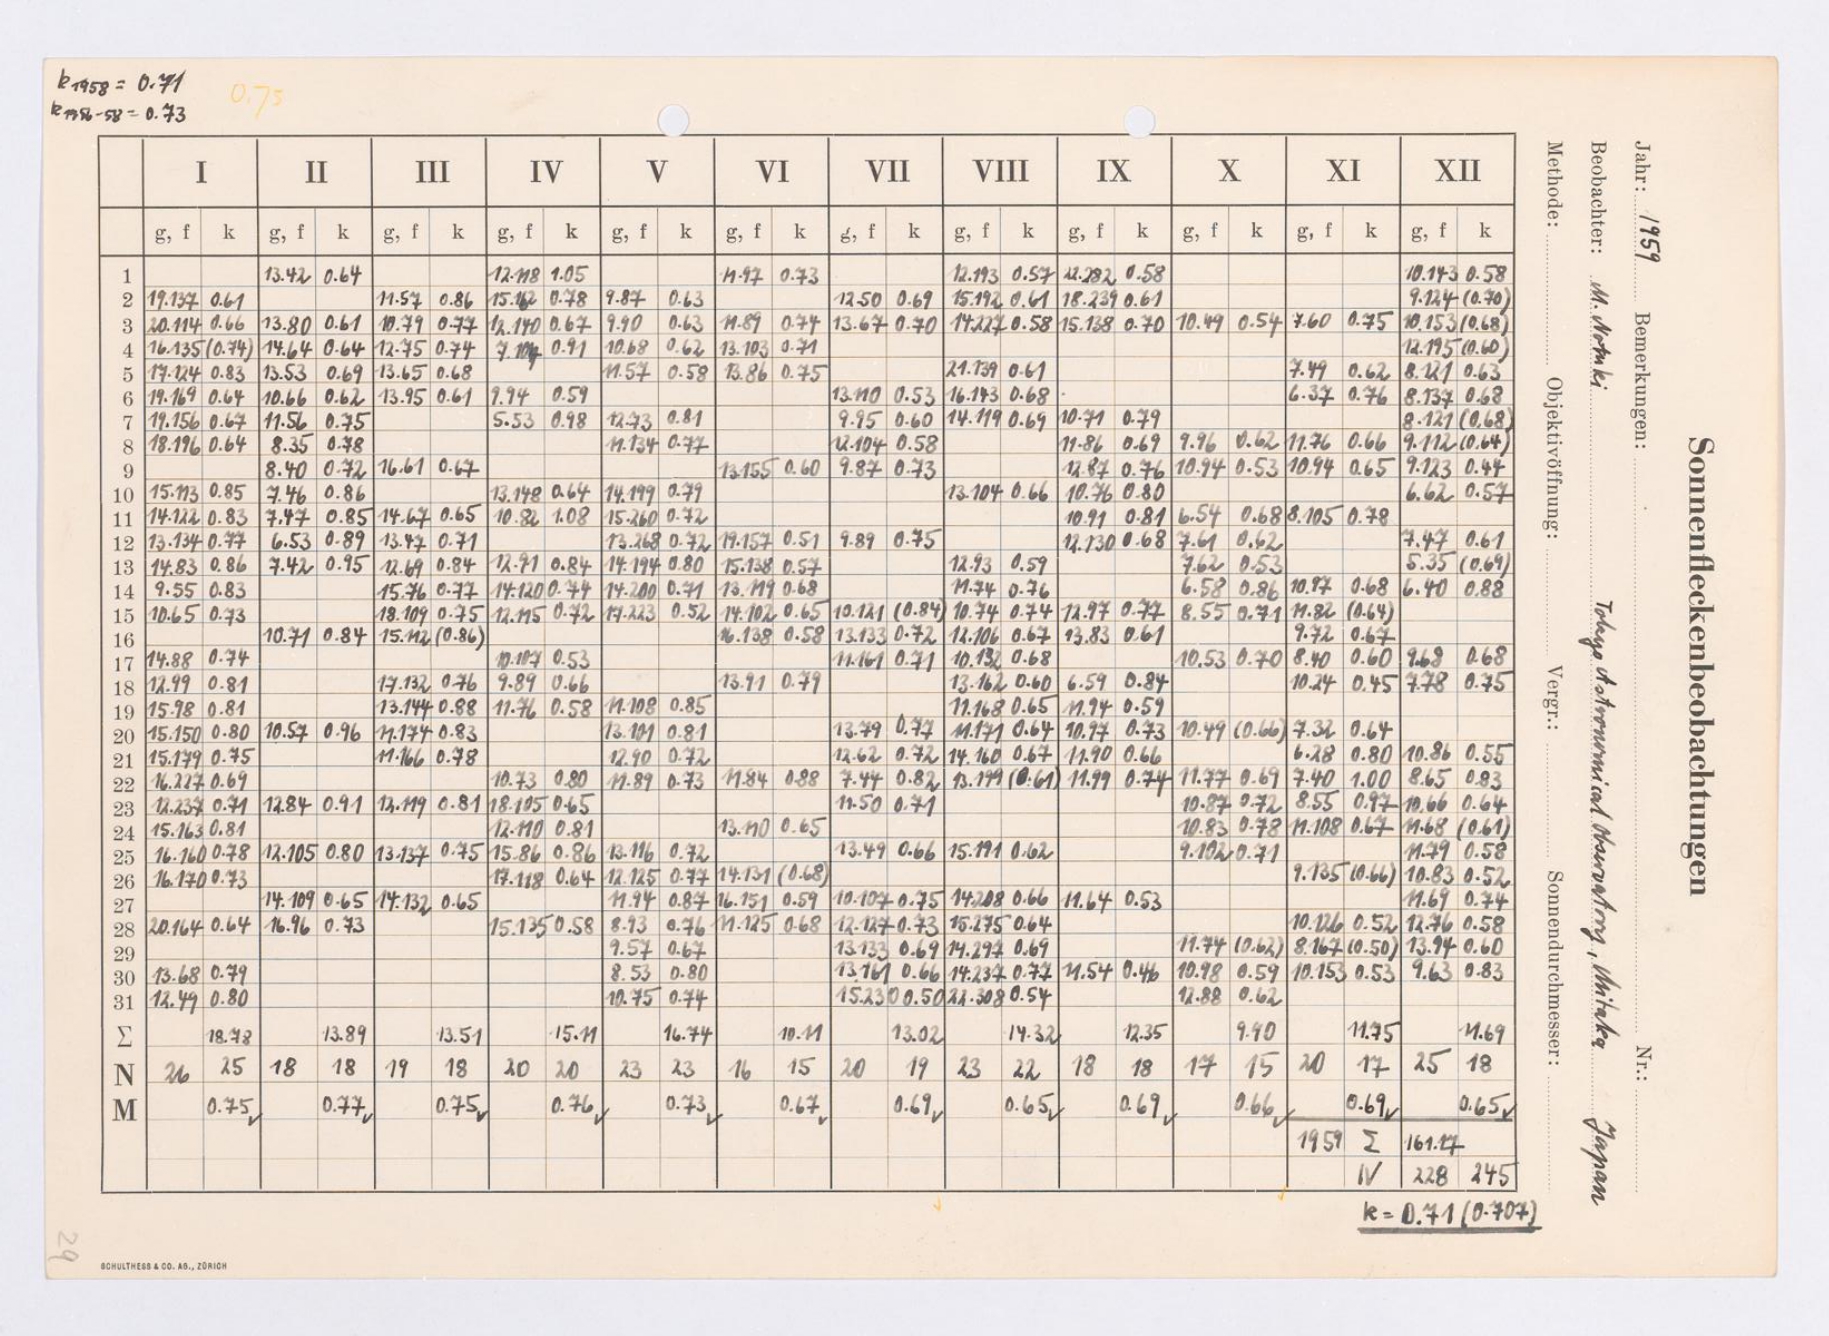 k1958 = 0.71
0.75
k1956-58 = 0.73
I II III IV V VI VII VIII IX X XI XII
g, f k g, f k g, f k g, f k g, f k g, f k g, f k g, f k g, f k g, f k g, f k g, f k
1 13.42 0.64 12.118 1.05 11.97 0.73 12.193 0.57 22.282 0.58 10.143 0.58
2 19.137 0.61 11.57 0.86 15.162 0.78 9.87 0.63 12.50 0.69 15.192 0.61 18.239 0.61 9.124 (0.70)
3 20.114 0.66 13.80 0.61 10.79 0.77 12.140 0.67 9.90 0.63 11.89 0.74 13.67 0.70 14.227 0.58 15.138 0.70 10.49 0.54 7.60 0.75 10.153 (0.68)
4 16.135 (0.74) 14.64 0.64 12.75 0.74 0.91 10.68 0.62 13.103 0.71 12.195 (0.60)
5 17.124 0.83 13.53 0.69 13.65 0.68 11.57 0.58 13.86 0.75 21.139 0.61 7.49 0.62 8.121 0.63
6 19.169 0.64 10.66 0.62 13.95 0.61 9.94 0.59 13.110 0.53 16.143 0.68 6.37 0.76 8.137 0.68
7 19.156 0.67 11.56 0.75 5.53 0.98 12.73 0.81 9.95 0.60 14.119 0.69 10.71 0.79 8.121 (0.68)
8 18.196 0.64 8.35 0.78 11.134 0.77 12.104 0.58 11.86 0.69 9.96 0.62 11.76 0.66 9.112 (0.64)
9 8.40 0.72 16.61 0.67 13.155 0.60 9.87 0.73 12.87 0.76 10.94 0.53 10.94 0.65 9.123 0.44
10 15.113 0.85 7.46 0.86 13.148 0.64 14.199 0.79 13.104 0.66 10.76 0.80 6.62 0.57
11 14.122 0.83 7.47 0.85 14.67 0.65 10.82 1.08 15.260 0.72 10.91 0.81 6.54 0.68 8.105 0.78
12 13.134 0.77 6.53 0.89 13.47 0.71 13.268 0.72 19.157 0.51 9.89 0.75 12.130 0.68 7.61 0.62 7.47 0.61
13 14.83 0.86 7.42 0.95 12.69 0.84 12.91 0.84 14.194 0.80 15.138 0.57 12.93 0.59 7.62 0.53 5.35 (0.69)
14 9.55 0.83 15.76 0.77 14.120 0.74 14.200 0.71 13.119 0.68 11.74 0.76 6.58 0.86 10.97 0.68 6.40 0.88
15 10.65 0.73 18.109 0.75 12.115 0.72 17.223 0.52 14.102 0.65 10.121 (0.84) 10.74 0.74 12.97 0.77 8.55 0.71 11.82 (0.64)
16 10.71 0.84 15.112 (0.86) 16.138 0.58 13.133 0.72 12.106 0.67 13.83 0.61 9.72 0.67
17 14.88 0.74 10.107 0.53 11.161 0.71 10.132 0.68 10.53 0.70 8.40 0.60 9.68 0.68
18 12.99 0.81 17.132 0.76 9.89 0.66 13.91 0.79 13.162 0.60 6.59 0.84 10.24 0.45 7.78 0.75
19 15.98 0.81 13.144 0.88 11.76 0.58 11.108 0.85 11.168 0.65 11.94 0.59
20 15.150 0.80 10.57 0.96 11.174 0.83 13.101 0.81 13.79 0.77 11.171 0.64 10.97 0.73 10.49 (0.66) 7.32 0.64
21 15.179 0.75 11.166 0.78 12.90 0.72 12.62 0.72 14.160 0.67 11.90 0.66 6.28 0.80 10.86 0.55
22 16.227 0.69 10.73 0.80 11.89 0.73 11.84 0.88 7.44 0.82 13.199 (0.61) 11.99 0.74 11.77 0.69 7.40 1.00 8.65 0.83
23 12.237 0.71 12.84 0.91 12.119 0.81 18.105 0.65 11.50 0.71 10.87 0.72 8.55 0.97 10.66 0.64
24 15.163 0.81 12.110 0.81 13.110 0.65 10.83 0.78 11.108 0.67 11.68 (0.61)
25 16.160 0.78 12.105 0.80 13.137 0.75 15.86 0.86 13.116 0.72 13.49 0.66 15.191 0.62 9.102 0.71 11.79 0.58
26 16.170 0.73 17.118 0.64 12.125 0.77 14.131 (0.68) 9.135 (0.66) 10.83 0.52
27 14.109 0.65 14.132 0.65 11.94 0.87 16.151 0.59 10.107 0.75 14.208 0.66 11.64 0.53 11.69 0.74
28 20.164 0.64 16.96 0.73 15.135 0.58 8.93 0.76 11.125 0.68 12.127 0.73 15.275 0.64 10.126 0.52 12.76 0.58
29 9.57 0.67 13.133 0.69 14.297 0.69 11.74 (0.62) 8.167 (0.50) 13.94 0.60
30 13.68 0.79 8.53 0.80 13.161 0.66 14.237 0.77 11.54 0.46 10.98 0.59 10.153 0.53 9.63 0.83
31 12.49 0.80 10.75 0.74 15.230 0.50 22.308 0.54 12.88 0.62
Σ 18.78 13.89 13.51 15.11 16.74 10.11 13.02 14.32 12.35 9.90 11.75 11.69
N 26 25 18 18 19 18 20 20 23 23 16 15 20 19 23 22 18 18 17 15 20 17 25 18
M 0.75✓ 0.77✓ 0.75✓ 0.76✓ 0.73✓ 0.67✓ 0.69✓ 0.65✓ 0.69✓ 0.66✓ 0.69✓ 0.65✓
1959 Σ 161.17
N 228 245
k = 0.71 (0.707)
29
SCHULTHESS & CO. AG., ZÜRICH
Sonnenfleckenbeobachtungen
Jahr: 1959 Bemerkungen: Nr.:
Beobachter: M. Notuki Tokyo Astronomical Observatory, Mitaka Japan
Methode: Objektivöffnung: Vergr.: Sonnendurchmesser: